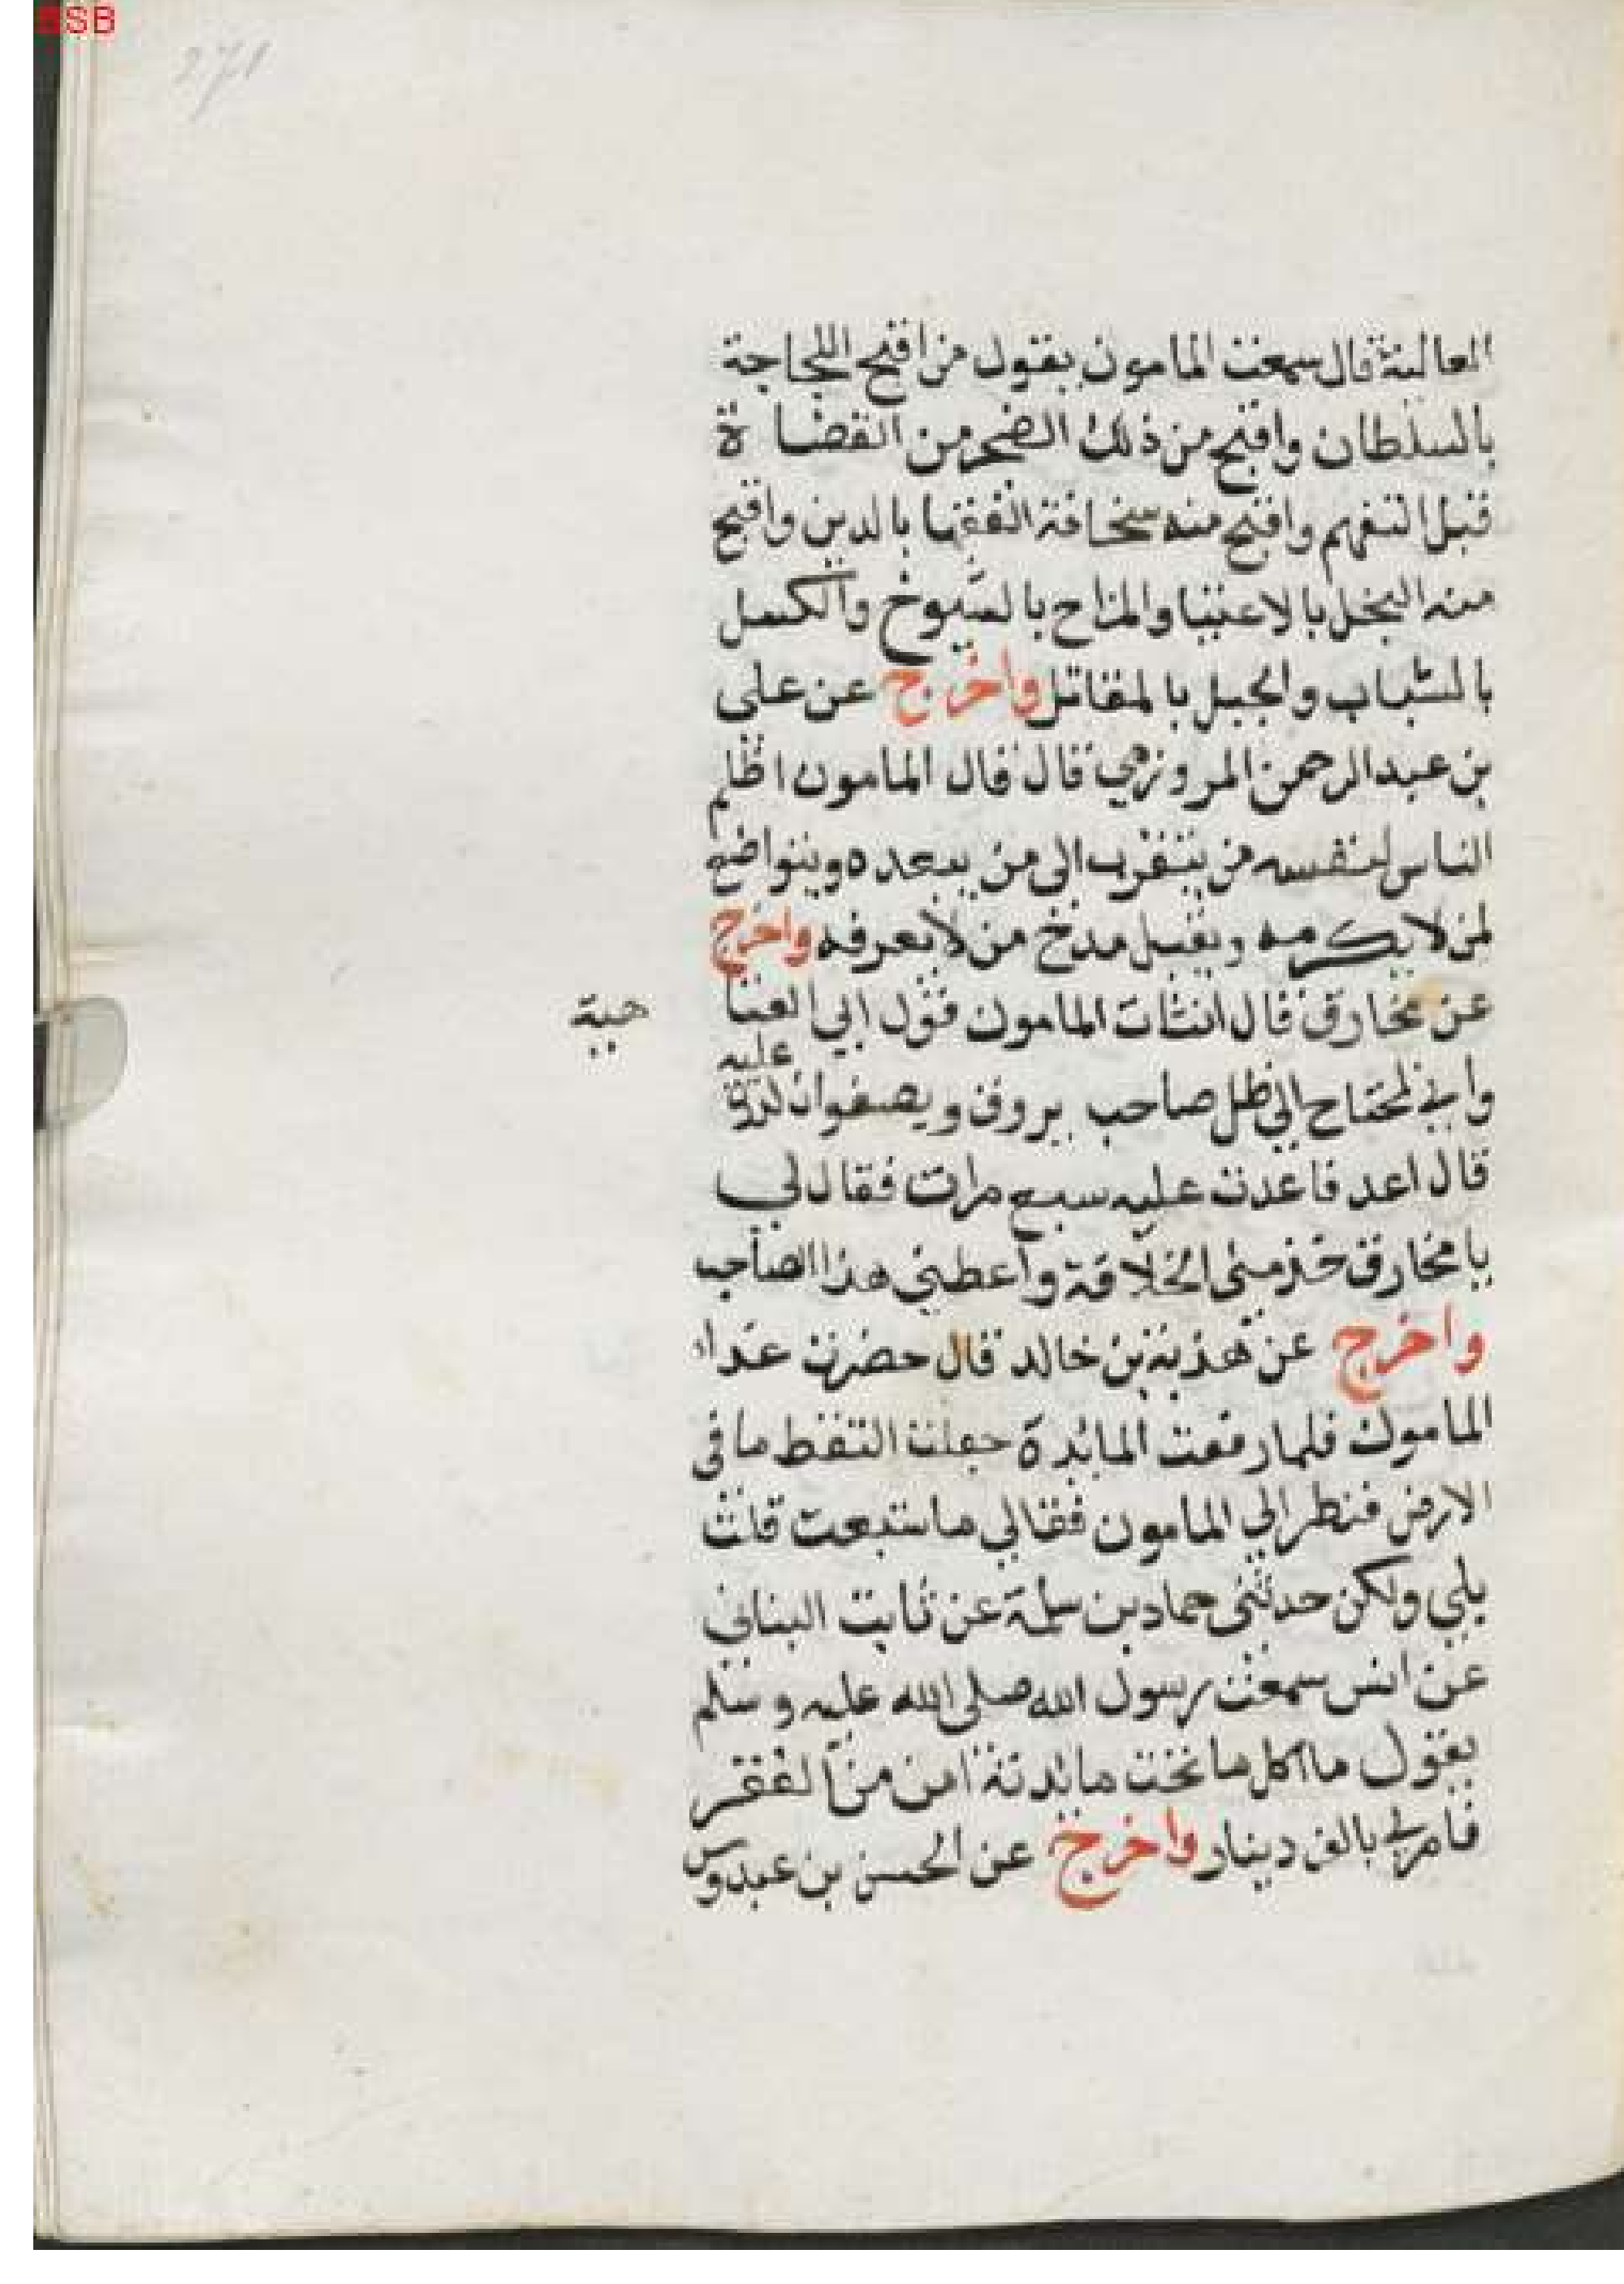 BSB
271
العالية قال سمعت المامون يقول من اقبح اللجاجة
بالسلطان واقبح من ذلك الضجر من القضاة
قبل التفهم واقبح منه سخافة الفقها بالدين واقبح
منه البخل بالاغنيا والمزاح بالشيوخ والكسل
بالشباب والجبل بالمقاتل واخرج عن على
بن عبد الرحمن المروزي قال قال المامون اظلم
الناس لنفسه من يتقرب الى من يبعده ويتواضع
لمن لا يكرمه ويقبل مدح من لا يعرفه واخرج
عن مخارق قال انشات المامون قول ابي العتا
هية
واني لمحتاج الي ظل صاحب يروق ويصفوان كدرة
عليه
قال اعد فاعدت عليه سبع مرات فقال لي
يا مخارق خذ منى الخلافة واعطني هذا الصاحب
واخرج عن هذبة بن خالد قال حضرت غدا
المامون فلما رفعت المائدة جعلت التقط ما فى
الارض فنظر الي المامون فقالي ما ستبعت قلت
بلي ولكن حدثنى حماد بن سلمة عن ثابت البناني
عن انس سمعت رسول الله صلى الله عليه وسلم
يقول ما اكل ما تحت مائدته امن من الفقر
فامر لي بالف دينار واخرج عن الحسن بن عبدوس